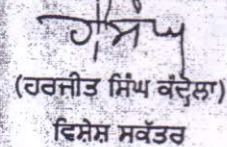 (ਹਰਜੀਤ ਸਿੰਘ ਕੰਦੋਲਾ)
ਵਿਸ਼ੇਸ਼ ਸਕੱਤਰ